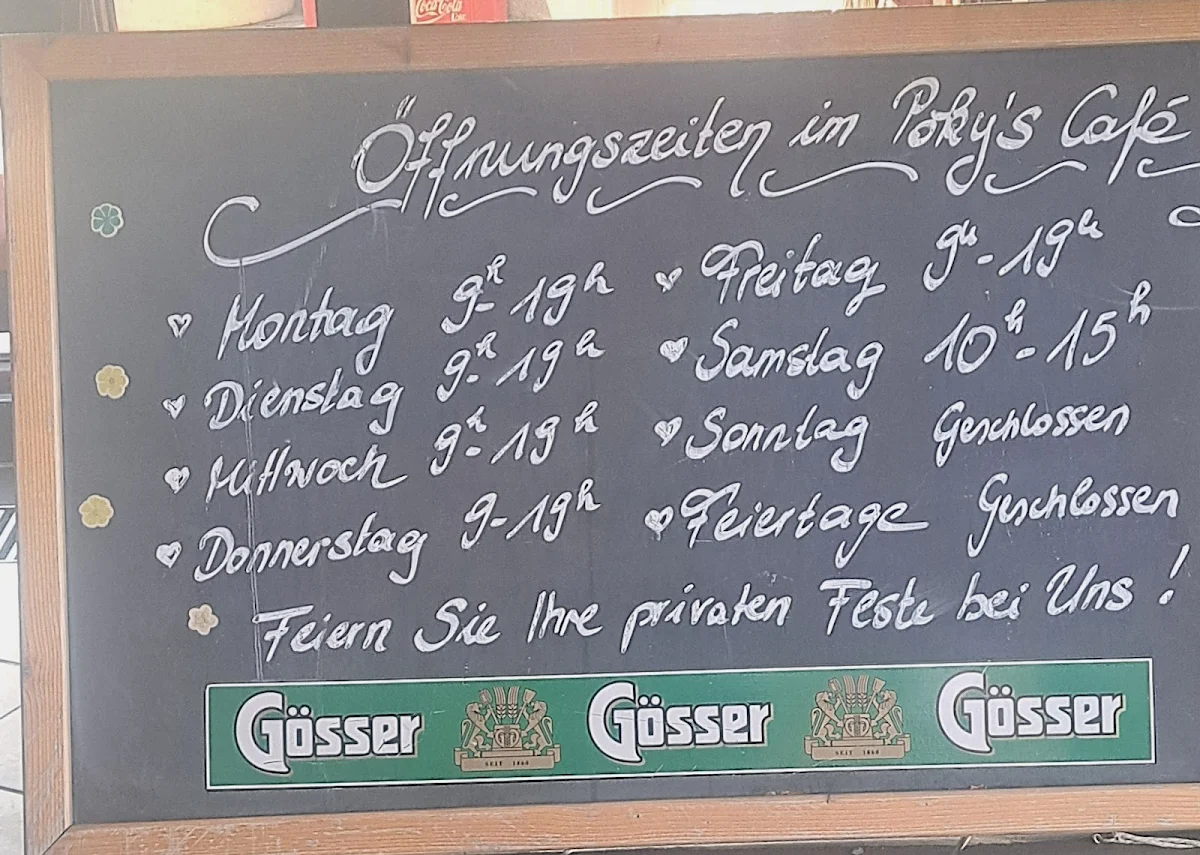 Coca-Cola
Öffnungszeiten im Poky's Café
Montag 9h-19h
Dienstag 9h-19h
Mittwoch 9h-19h
Donnerstag 9-19h
Freitag 9h-19h
Samstag 10h-15h
Sonntag Geschlossen
Feiertage Geschlossen
Feiern Sie Ihre privaten Feste bei Uns!
Gösser Gösser Gösser
SEIT 1860 SEIT 1860